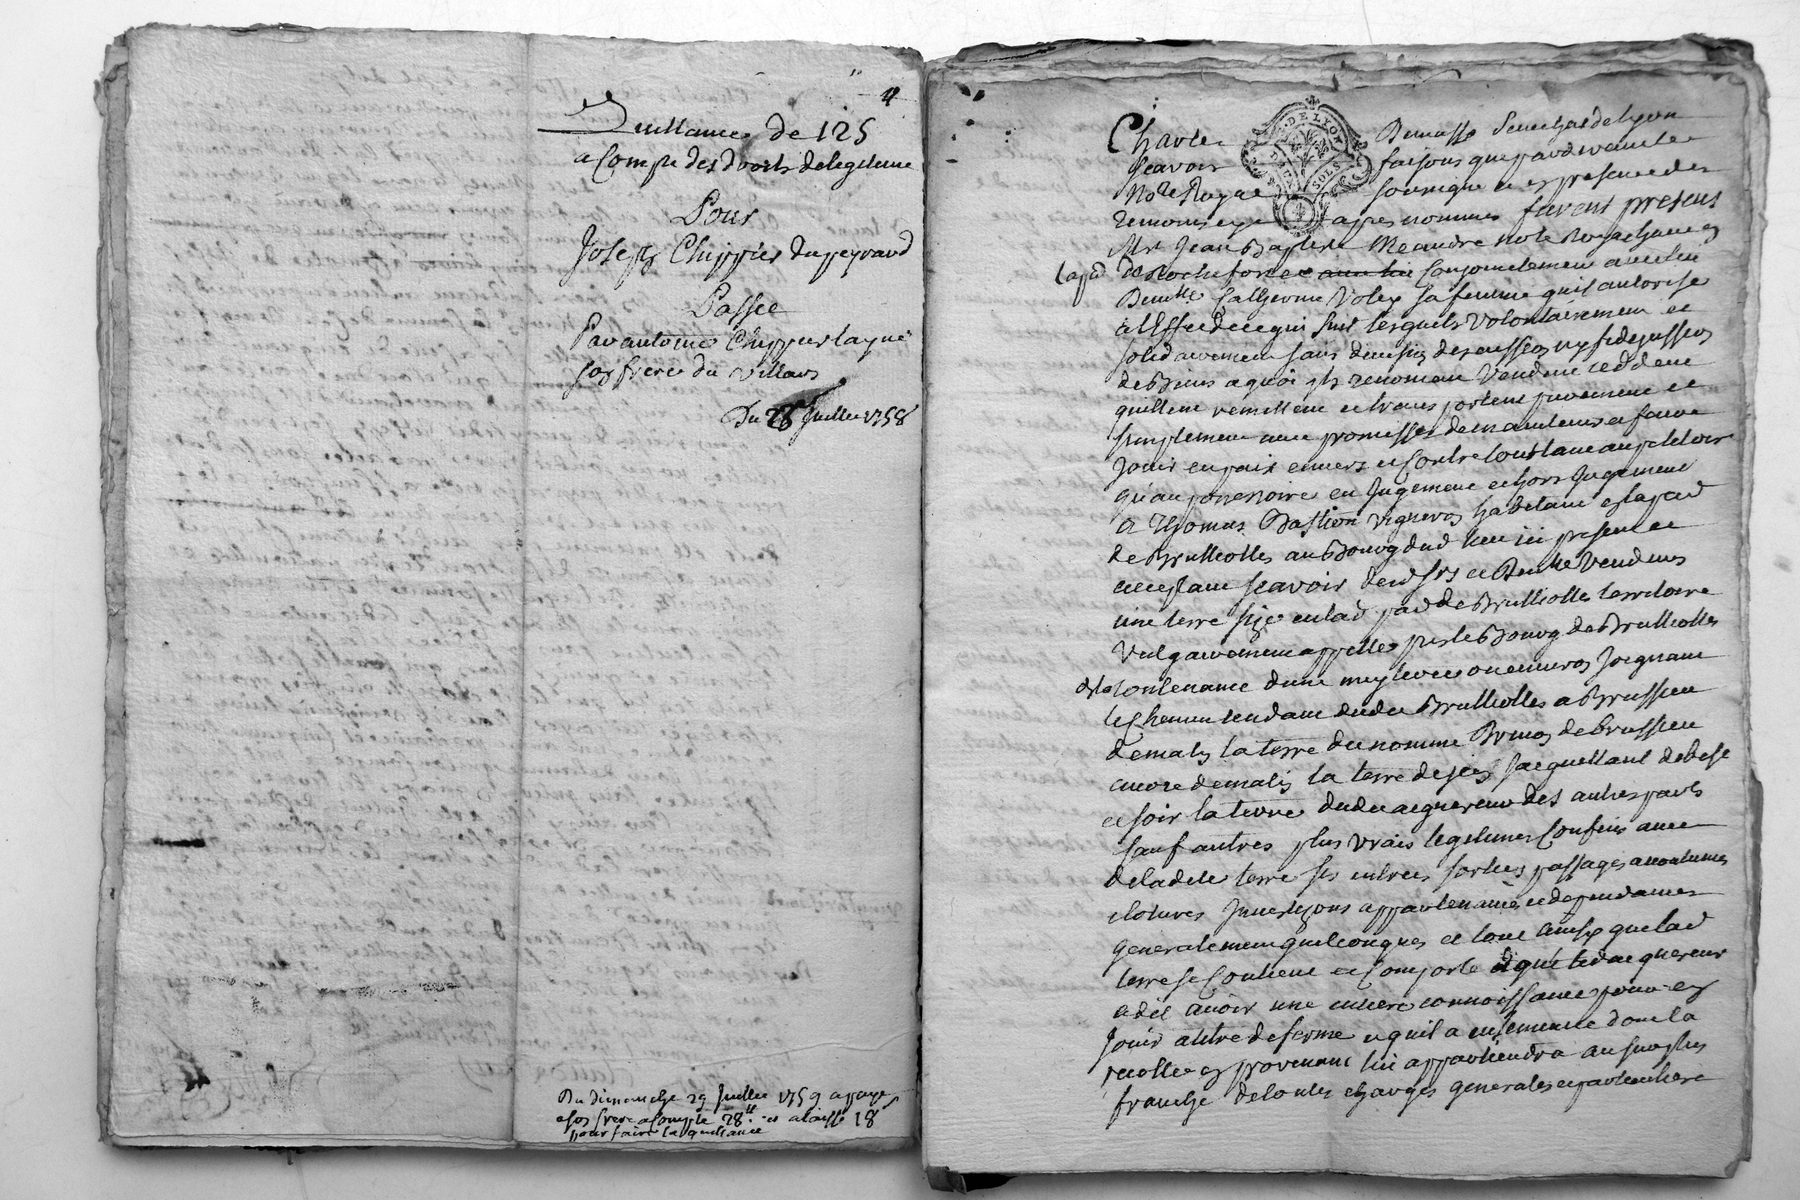 4
Quittance de 125
a Compte des droits de legitime
Pour
Joseph Chippier du peyrard
Passée
Par antoine Chippier layné
son frere du villars
Du 28 Juillet 1758
Du dimanche 29 Juillet 1759 a payé
a son frere a Compte 28 et a laissé 18
pour faire la quittance
DE LYON
SOLS
Charles Demasso Senechal de lyon
scavoir faisons que pardevant le
Notre Royal soussigne et en presence des
temoins apres nommes furent present
Mr Jean Baptiste Meandre notre Royal
de Rochefort et Conjointement avec luy
Demlle Catherine Voley sa femme quil autorise
a l'Effet de ce qui suit lesquels volontairement et
solidairement sans division discussion ny fidejussion
de Biens a quoi ils renoncent vendent cedent
quittent remettent et transportent purement et
simplement avec promesse de maintenir et faire
Jouir en paix envers et Contre tous tant au petitoire
qu'au possessoire en Jugement et hors Jugement
a Thomas Bastion vigneron habitant en la par
de Brullioles au Bourg dud lieu ici present et
acceptant scavoir desd srs et Demlle vendeurs
une terre size en lad par de Brullioles territoire
vulgairement appelle pres le Bourg de Brullioles
de la Contenance dune meyteree ou environ Joignant
le Chemin tendant dudit Brullioles a Brussieu
de matin la terre du nomme de brussieu
encore de matin la terre de Jean Jacquettant de bise
et soir la terre dudit acquereur des autres parts
sauf autres plus vrais legitimes Confins avec
de ladite terre ses entrees sorties passages accoutumes
clotures Jonctions appartenances et dependances
generalement quelconques et tout ainsy que lad
terre se Contient et Comporte et que ledit acquereur
a dit avoir une entiere connoissance pour en
Jouir a titre de ferme et quil a ensemence dont la
recolte en provenant lui appartiendra au surplus
franche de toutes charges generales et particuliere